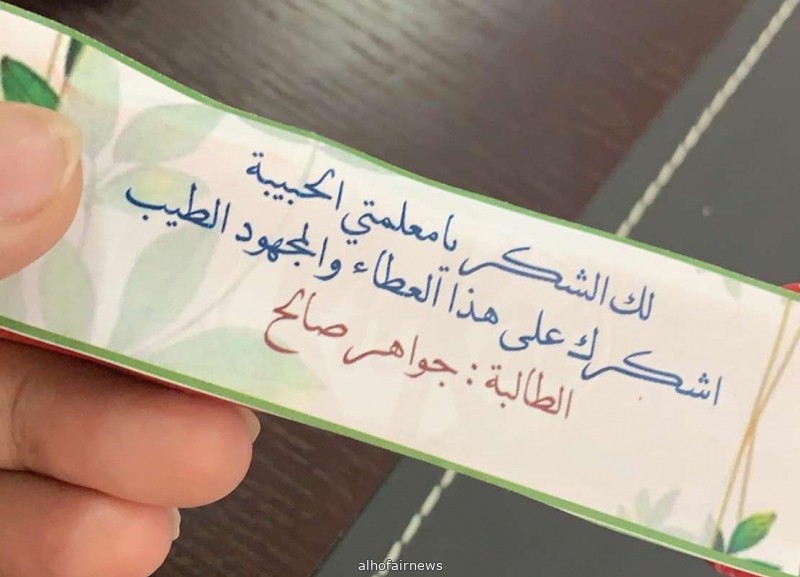 لك الشكر يامعلمتي الحبيبة
اشكرك على هذا العطاء والمجهود الطيب
الطالبة : جواهر صالح
alhofairnews